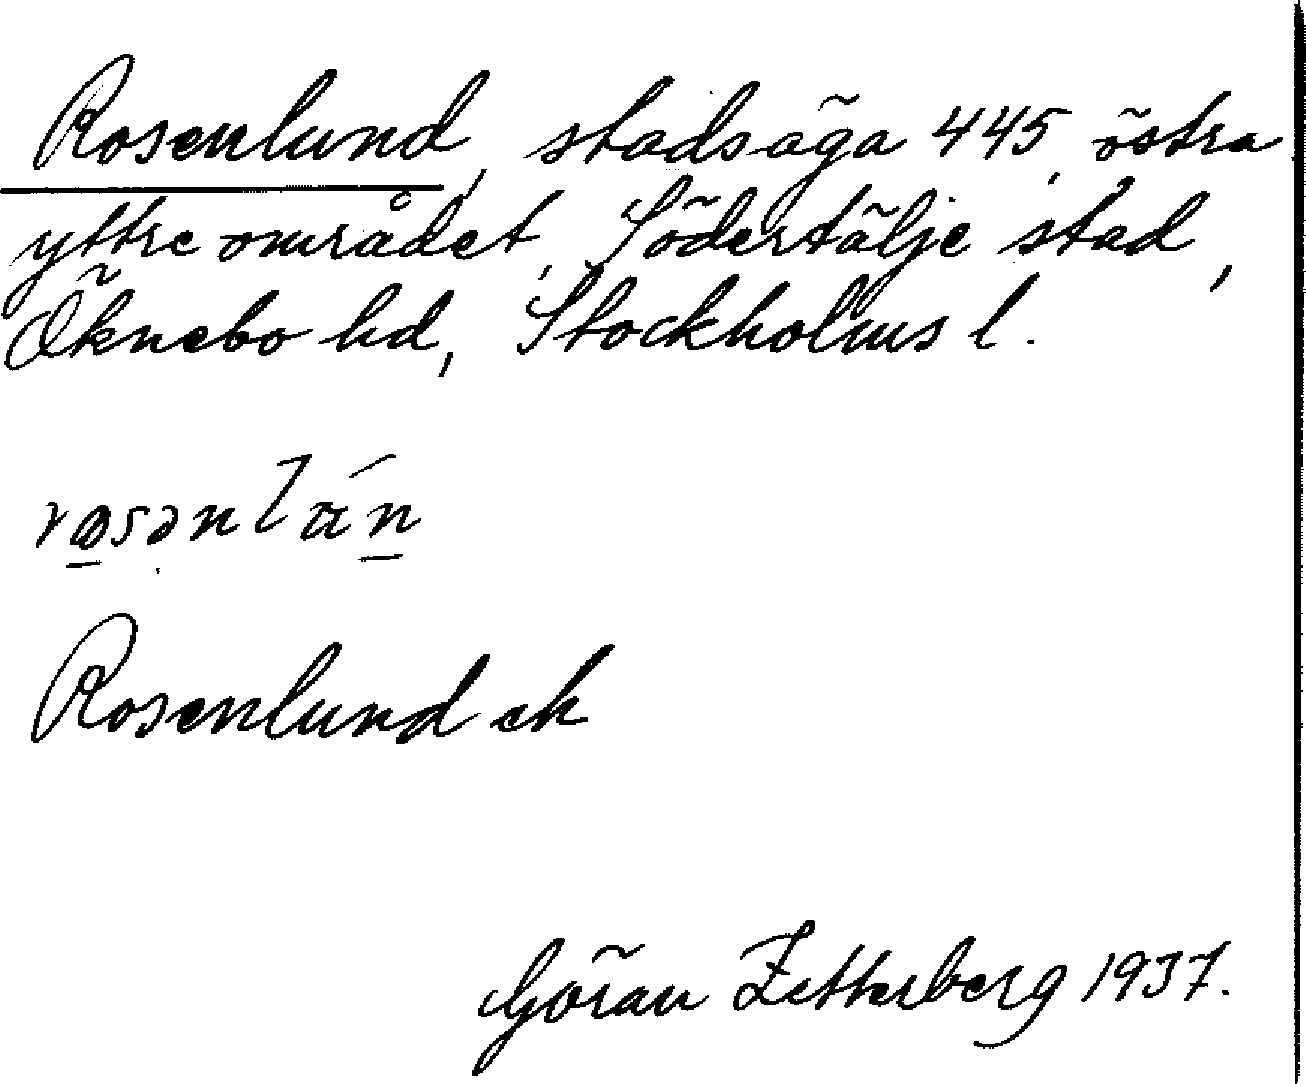 Rosenlund, stadsäga 445, östra
yttre området, Södertälje stad,
Öknebo hd, Stockholms l.
Rosenlund ek
Göran Zetterberg 1937.